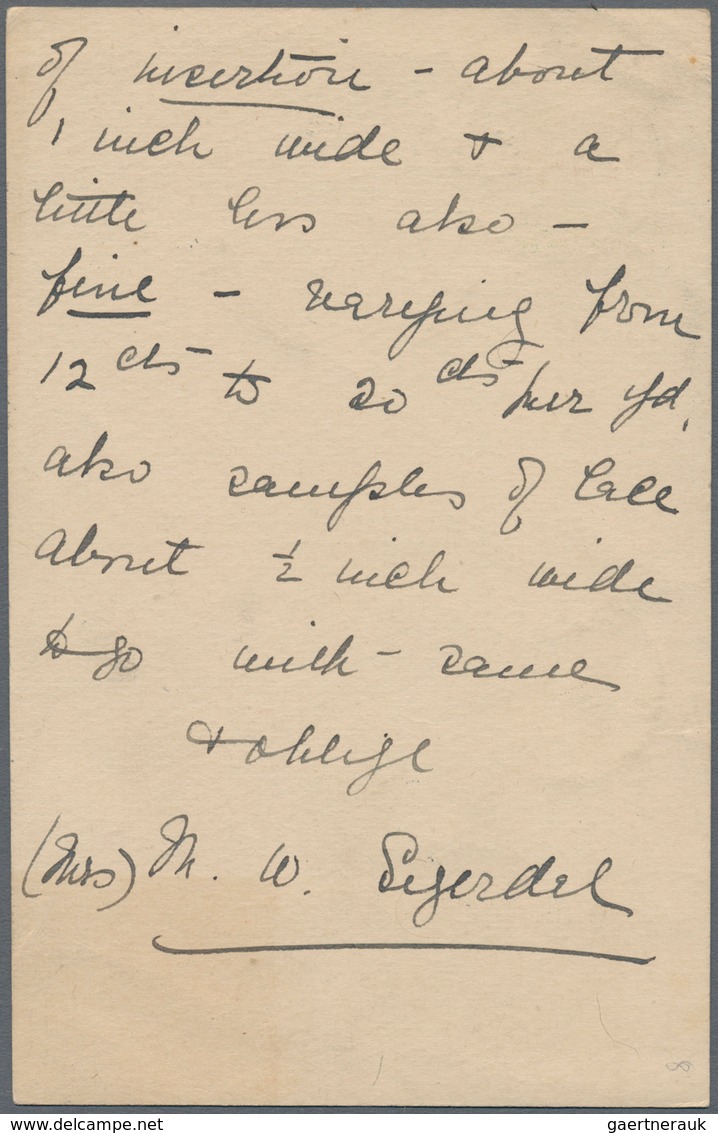 of insertion - about
1 inch wide & a
little less also -
fine - varying from
12 cts to 20 cts per yd.
also samples of lace
about ½ inch wide
to go with - same
& oblige
(Mrs) M. W. Segerdal
gaertnerauk